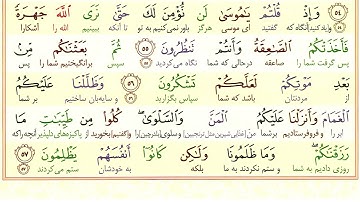 وَإِذْ قُلْتُمْ يَٰمُوسَىٰ لَن نُّؤْمِنَ لَكَ حَتَّىٰ نَرَى ٱللَّهَ جَهْرَةً
و یاد کنید آنگاه که گفتید ای موسی هرگز باور نمی‌کنیم به تو تا آنکه ببینیم الله را آشکارا
فَأَخَذَتْكُمُ ٱلصَّٰعِقَةُ وَأَنتُمْ تَنظُرُونَ ٥٥ ثُمَّ بَعَثْنَٰكُم مِّنۢ
پس گرفت شما را صاعقه درحالی که شما نگاه می‌کردید سپس برانگیختیم شما را پس از
بَعْدِ مَوْتِكُمْ لَعَلَّكُمْ تَشْكُرُونَ ٥٦ وَظَلَّلْنَا عَلَيْكُمُ
مردنتان باشد که شما سپاس بگزارید و سایه‌بان ساختیم بر شما
ٱلْغَمَامَ وَأَنزَلْنَا عَلَيْكُمُ ٱلْمَنَّ وَٱلسَّلْوَىٰ كُلُوا۟ مِن طَيِّبَٰتِ مَا
ابر را و فروفرستادیم بر شما من و سلوی بخورید از پاکیزه‌های آنچه را که
رَزَقْنَٰكُمْ وَمَا ظَلَمُونَا وَلَٰكِن كَانُوٓا۟ أَنفُسَهُمْ يَظْلِمُونَ ٥٧
روزی دادیم به شما و ستم نکردند به ما بلکه به خودشان ستم می‌کردند